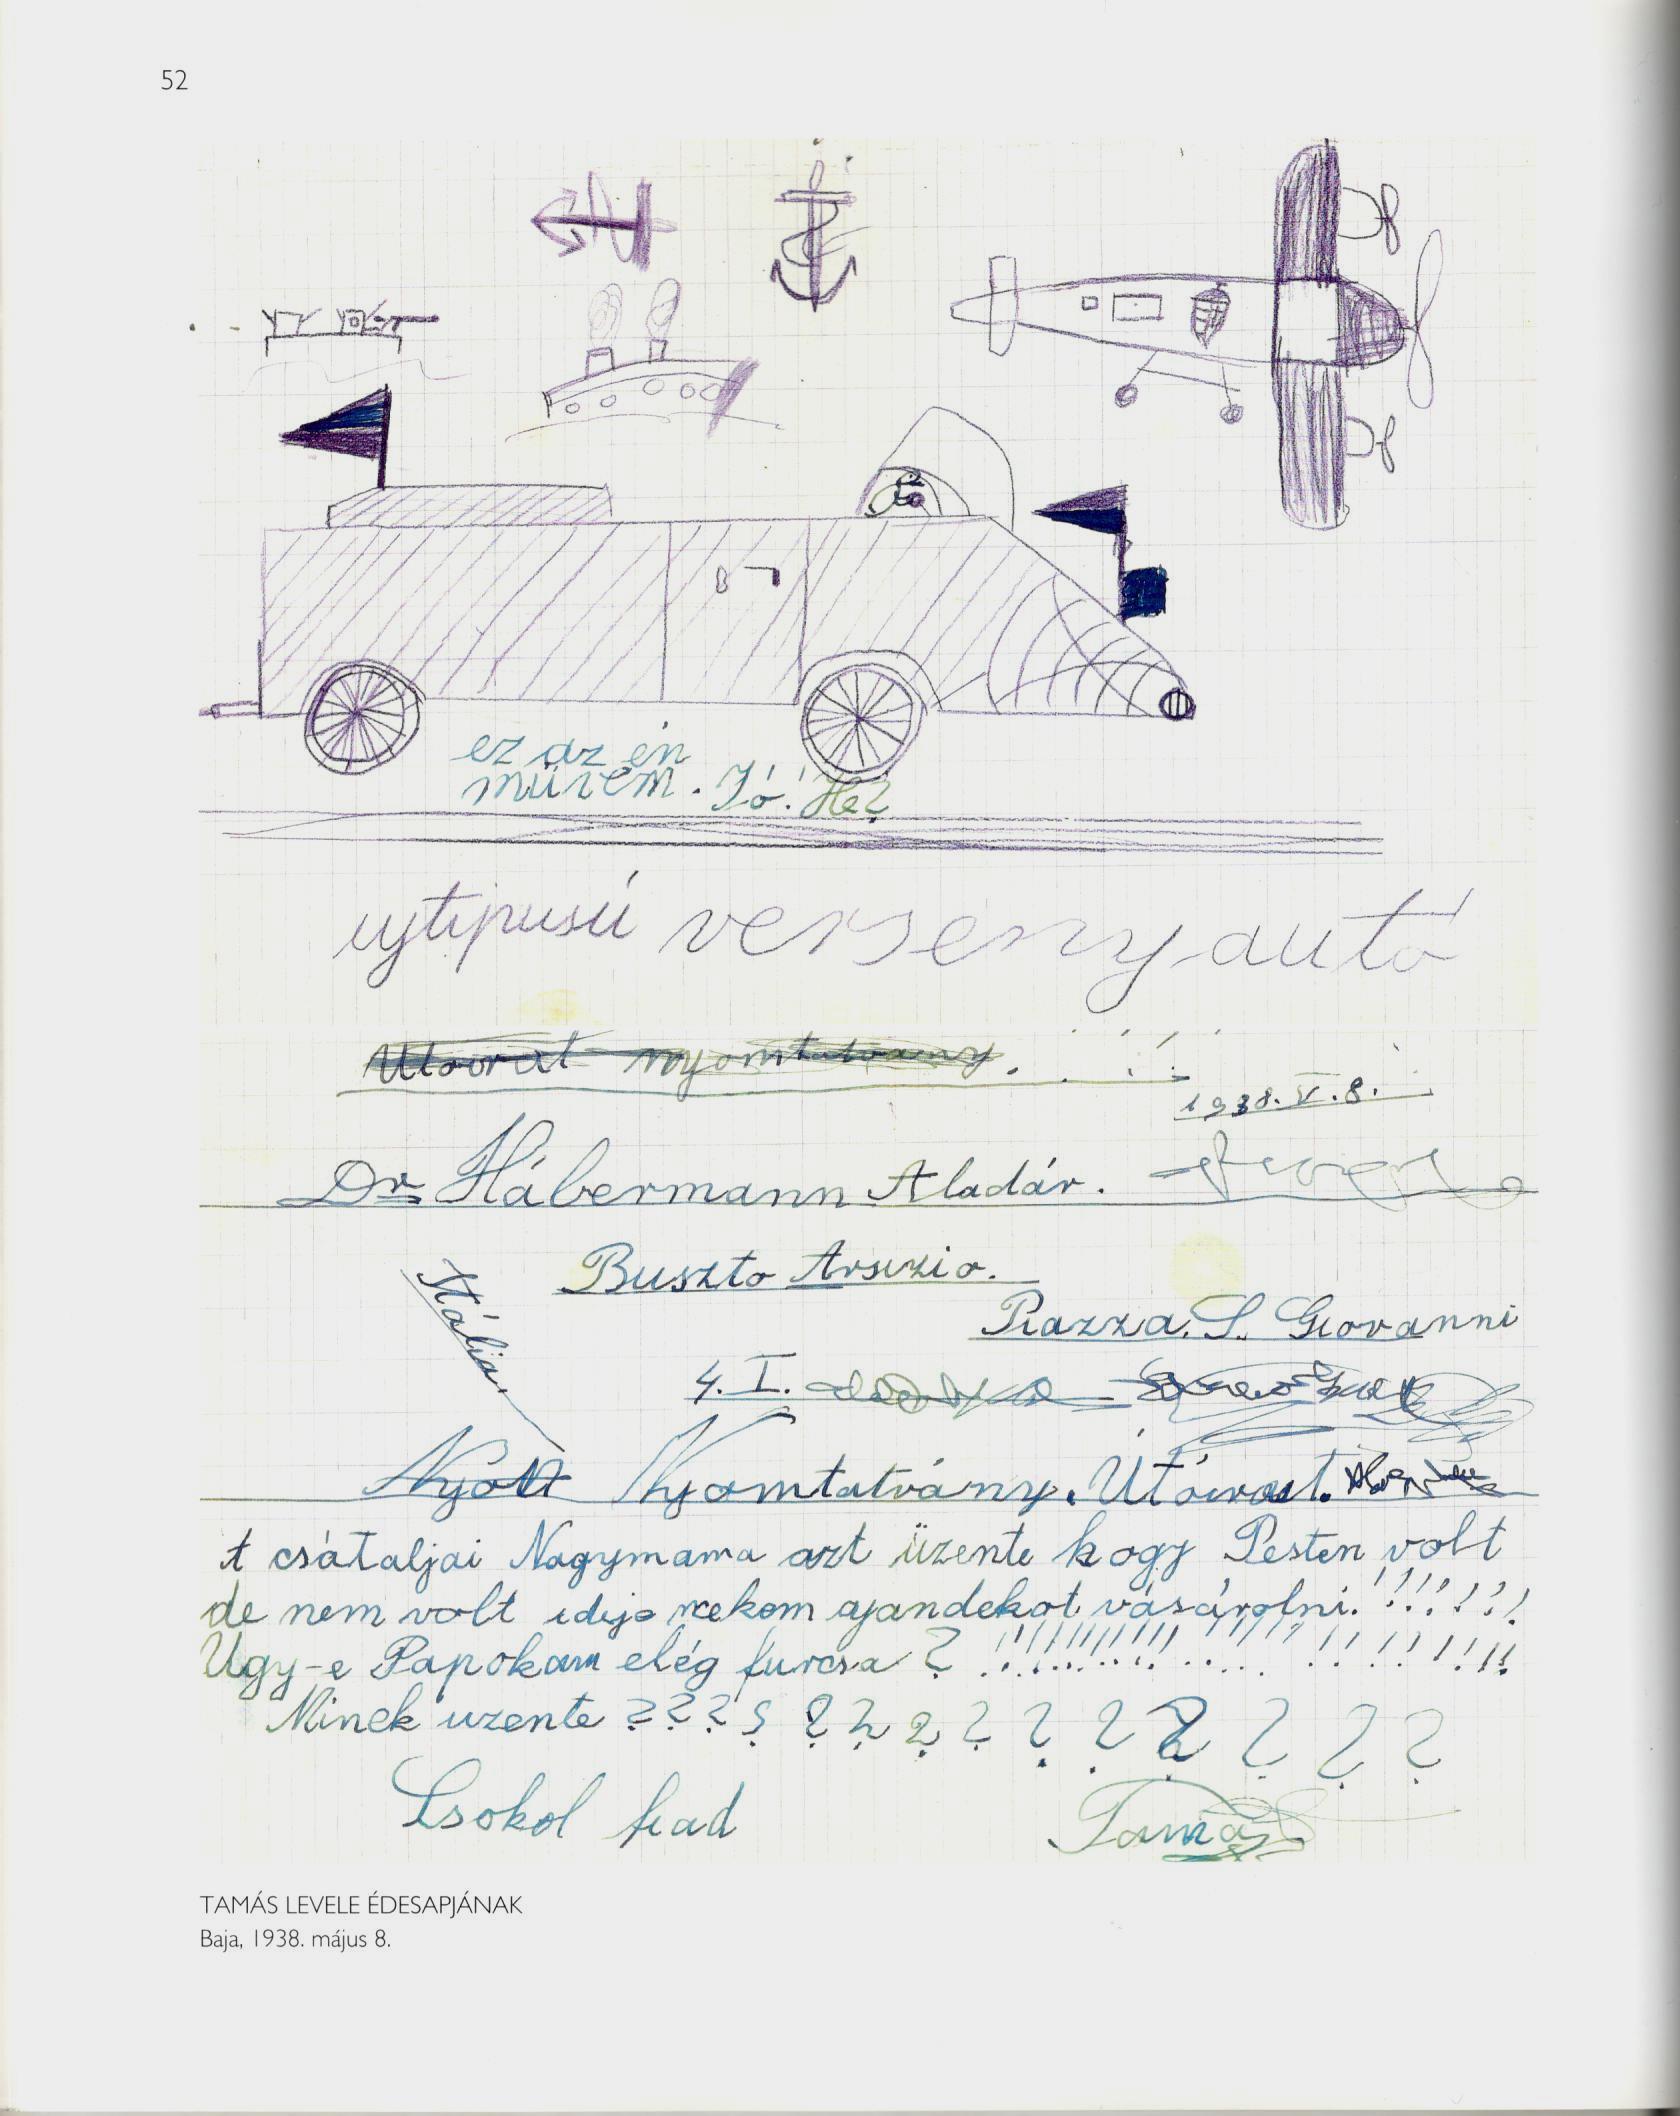 52
ez az én
művem. Jó! He?
ujtipusú versenyautó
Utóirat nyomtatvány.
1938. V. 8.
Dr Hábermann Aladár.
Buszto Arsizio.
Itália.
Piazza. S. Giovanni
4. I.
Nyomtatvány. Utóirat.
A csátaljai Nagymama azt üzente hogy Pesten volt
de nem volt ideje nekem ajandekot vásárolni.!!!!!!!
Ugy-e Papokam elég furcsa?
Minek uzente ??????????????
Csokol fiad Tamás
TAMÁS LEVELE ÉDESAPJÁNAK
Baja, 1938. május 8.